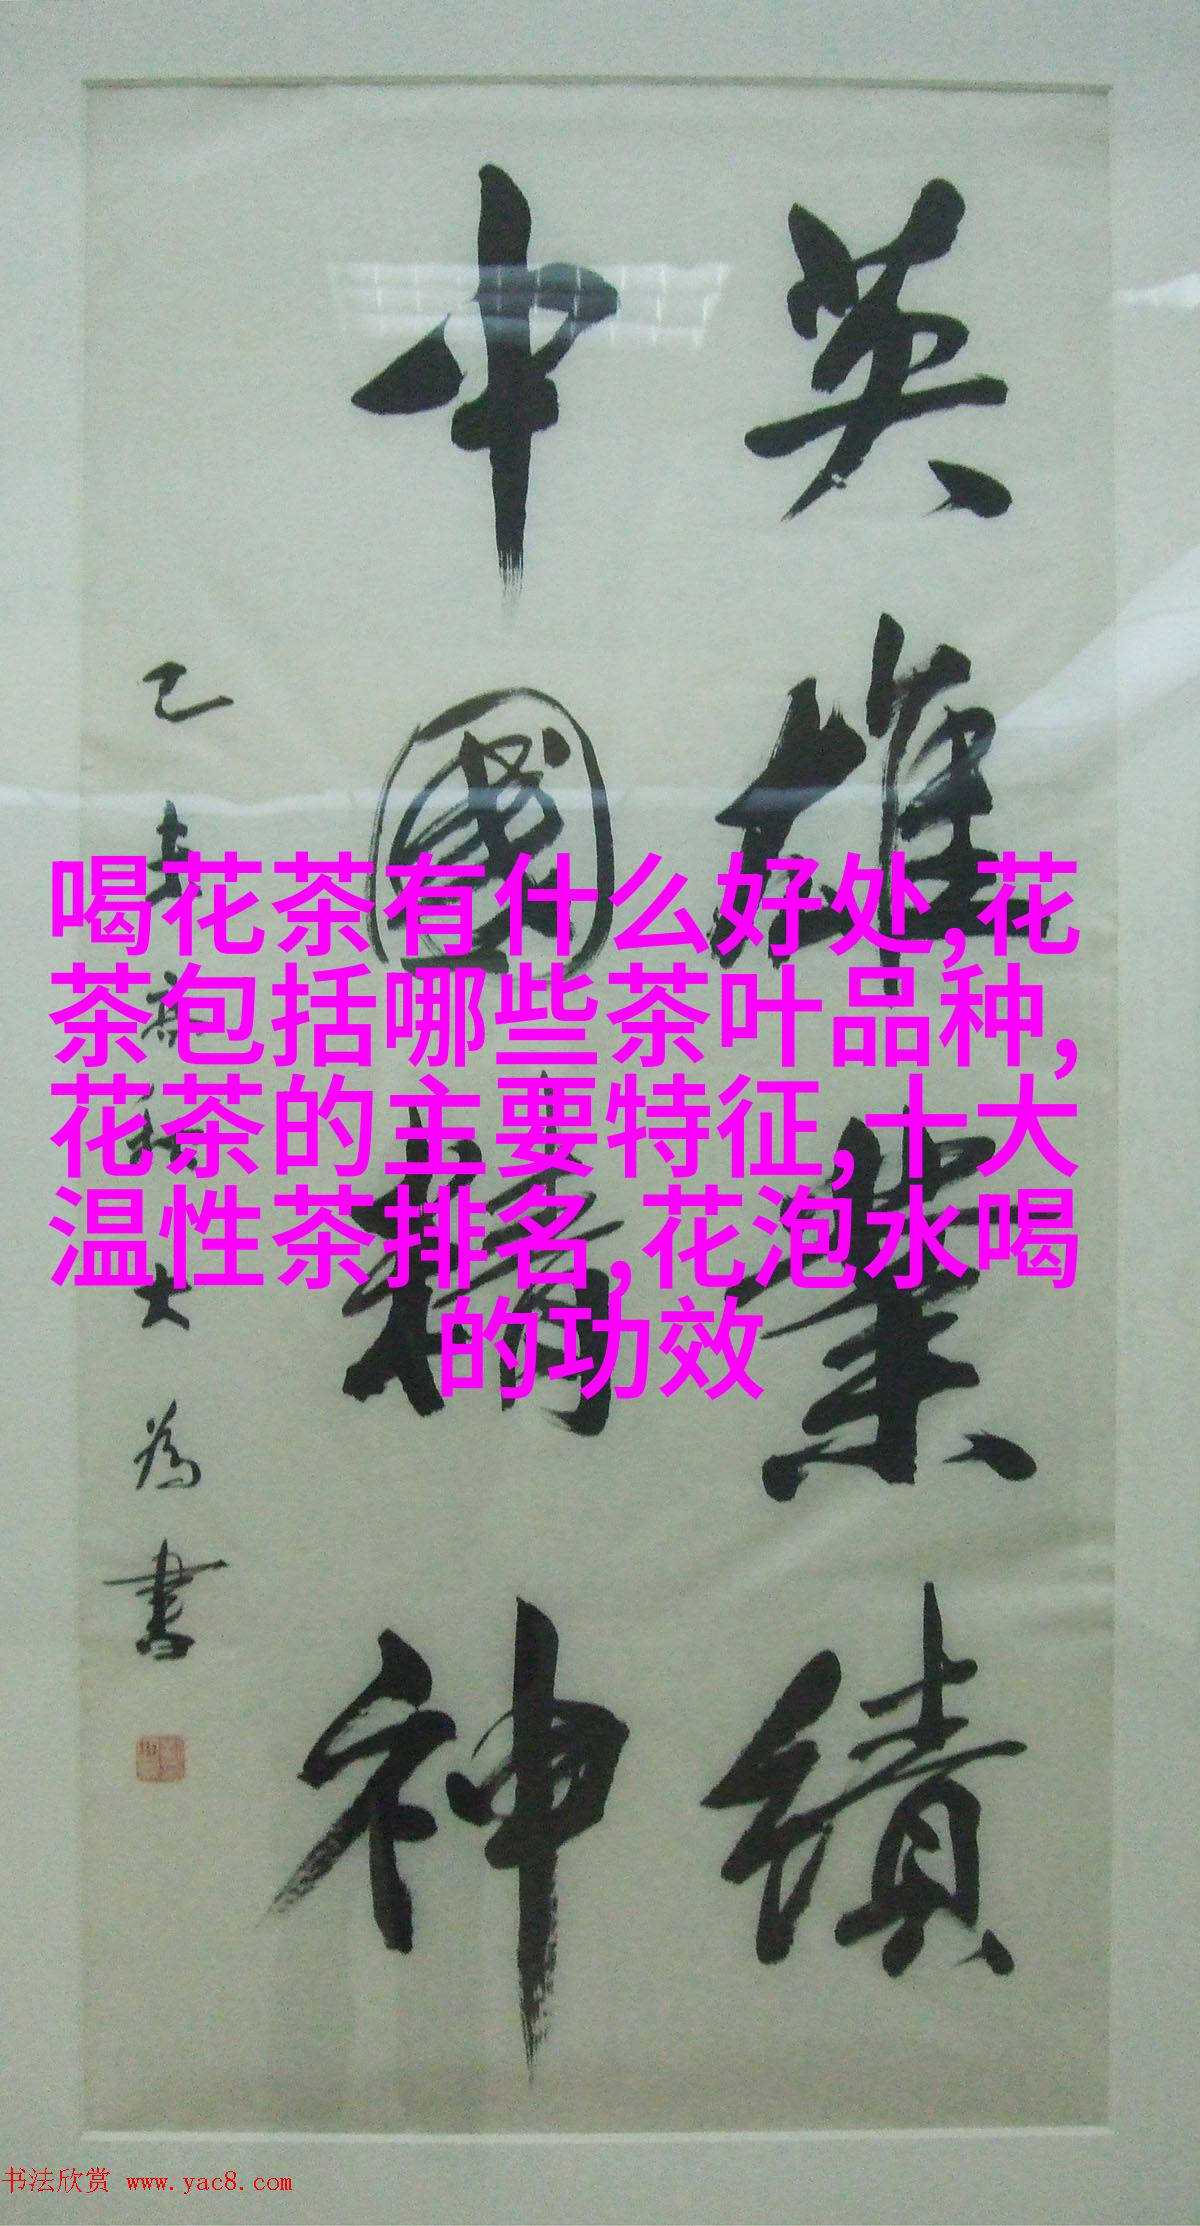 英雄業績
中國精神
己丑高秋大為書
喝花茶有什么好处,花
茶包括哪些茶叶品种,
花茶的主要特征,十大
温性茶排名,花泡水喝
的功效
书法欣赏 www.yac8.com